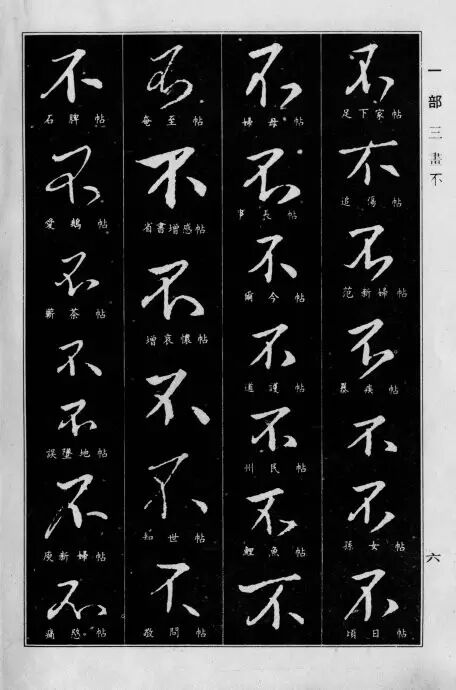 一部 三畫 不
六
不
足下家帖
不
追傷帖
不
范新婦帖
不
暴疾帖
不
不
孫女帖
不
頃日帖
不
婦母帖
不
長帖
不
爾今帖
不
道護帖
不
州民帖
不
鯉魚帖
不
不
奄至帖
不
省書增感帖
不
增哀懷帖
不
不
知世帖
不
敬問帖
不
石脾帖
不
愛鵝帖
不
蘄茶帖
不
不
誤墜地帖
不
庾新婦帖
不
痛愍帖